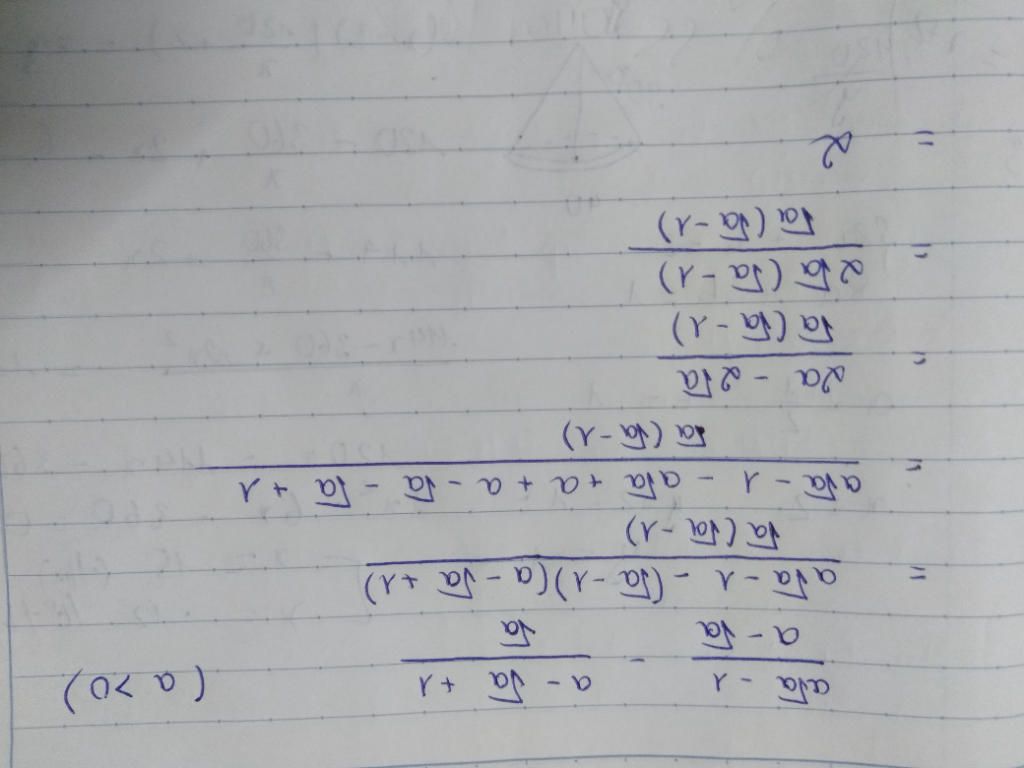 (a√a - 1)/(a - √a) - (a - √a + 1)/√a (a > 0)
= (a√a - 1 - (√a - 1)(a - √a + 1))/(√a (√a - 1))
= (a√a - 1 - a√a + a + a - √a - √a + 1)/(√a (√a - 1))
= (2a - 2√a)/(√a (√a - 1))
= (2√a (√a - 1))/(√a (√a - 1))
= 2